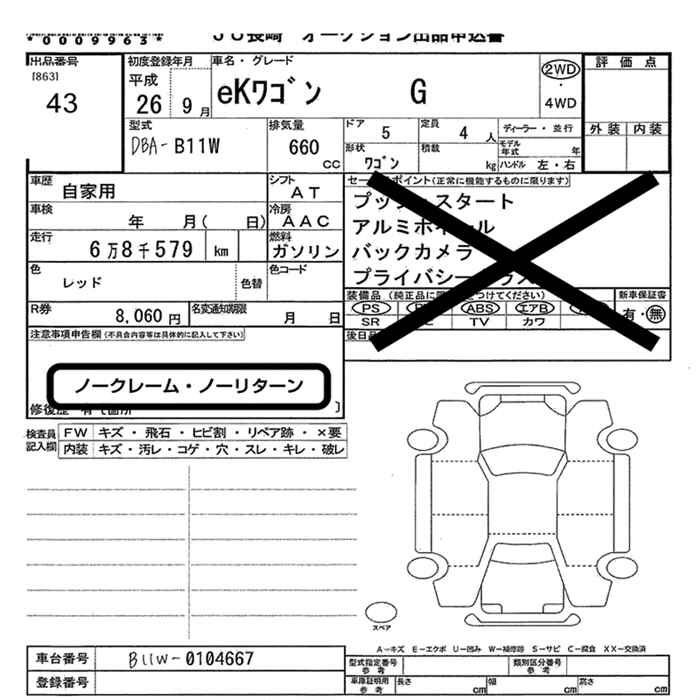 *0009963*
JU長崎 オークション出品申込書
出品番号
[863]
43
初度登録年月
平成
26 9月
車名・グレード
eKワゴン G
2WD
・
4WD
評価点
外装 内装
型式
DBA- B11W
排気量
660
CC
ドア 5
定員 4 人
ディーラー・並行
モデル年式 年
形状 ワゴン
積載 kg
ハンドル 左・右
車歴 自家用
シフト AT
車検 年 月( 日)
冷房 AAC
走行 6万8千579 km
燃料 ガソリン
色 レッド
色替
色コード
R券 8,060円
名変通知期限 月 日
セールスポイント(正常に機能するものに限ります)
プッシュスタート
アルミホイール
バックカメラ
プライバシーガラス
装備品 (純正品に限り をつけてください)
新車保証書
PS ABS エアB
有・無
SR TV カワ
後日品
注意事項申告欄(不具合内容等は具体的に記入して下さい)
ノークレーム・ノーリターン
修復歴 有〔箇所 〕
検査員記入欄
FW キズ・飛石・ヒビ割・リペア跡・×要
内装 キズ・汚レ・コゲ・穴・スレ・キレ・破レ
スペア
A-キズ E-エクボ U-凹み W-補修跡 S-サビ C-腐食 XX-交換済
車台番号 B11W-0104667
登録番号
型式指定番号 参考
類別区分番号 参考
車庫証明用 参考
長さ cm
幅 cm
高さ cm